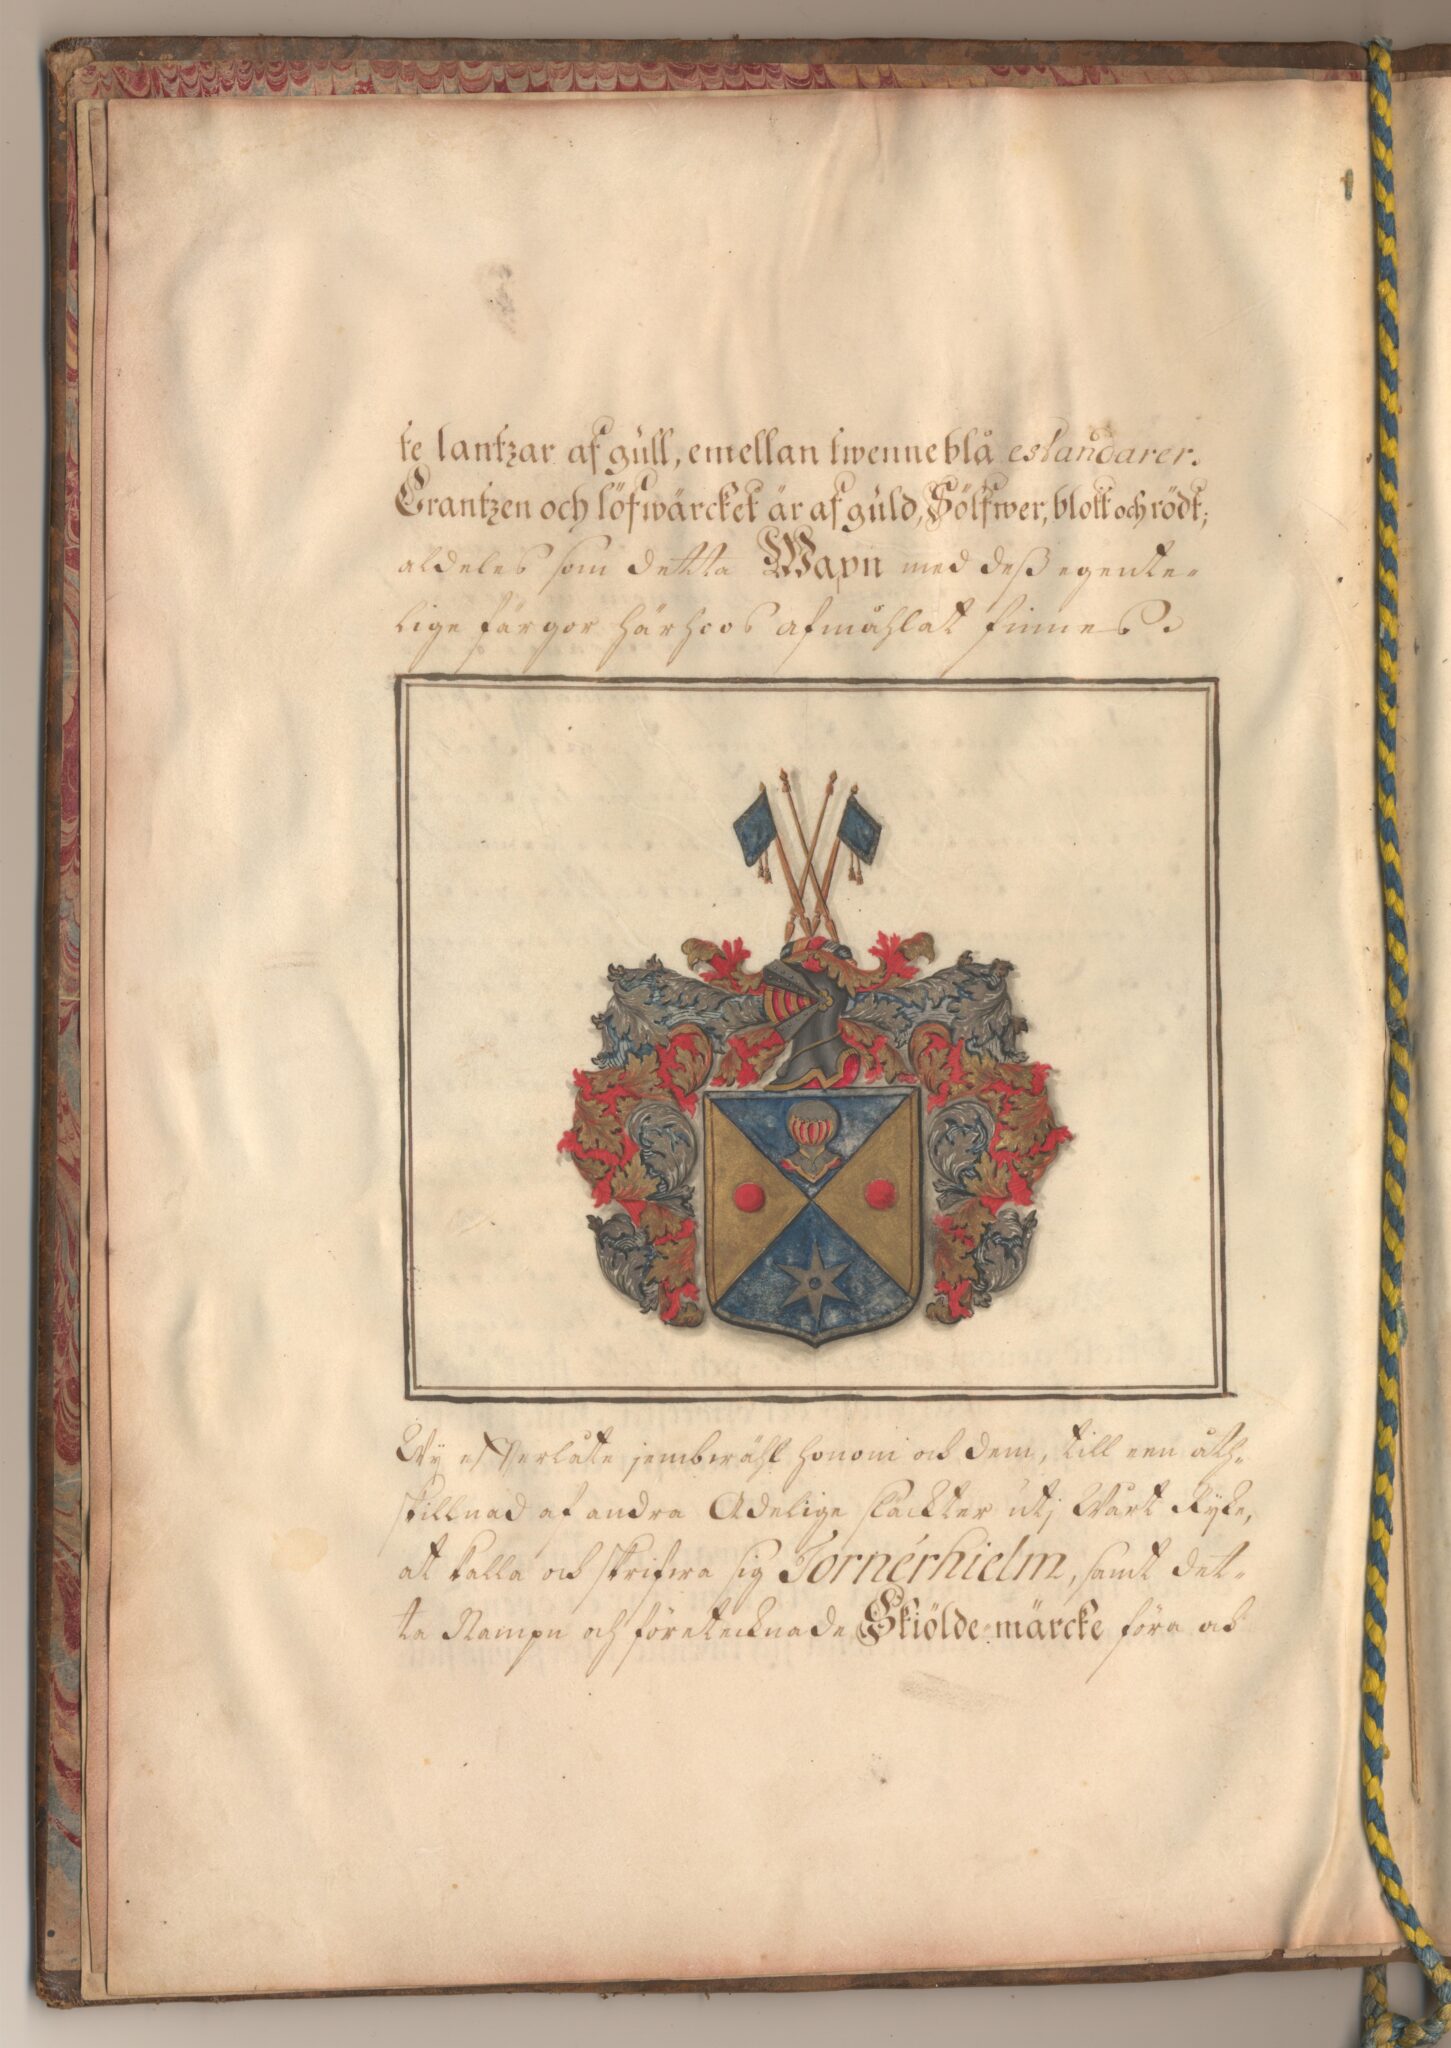 te lantzar af gull, emellan twenne blå estandarer.
Crantzen och löfwärcket är af guld, Sölfwer, blott och rödt;
aldeles som detta Wapn med deß egente-
lige färgor härhoos afmåhlat finnes.
Wy efterlåte jemberähl honom och dem, till een åth-
skillnad af andra Adelige släckter utj Wårt Ryke,
at kalla och skrifwa sig Tornérhielm, samt det-
ta Nampn och företecknade Skiölde-märcke föra och